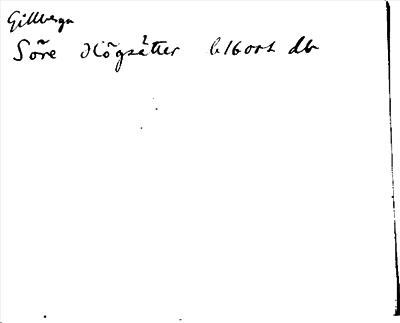 Gillberga
Sõre Högsätter b1600t db